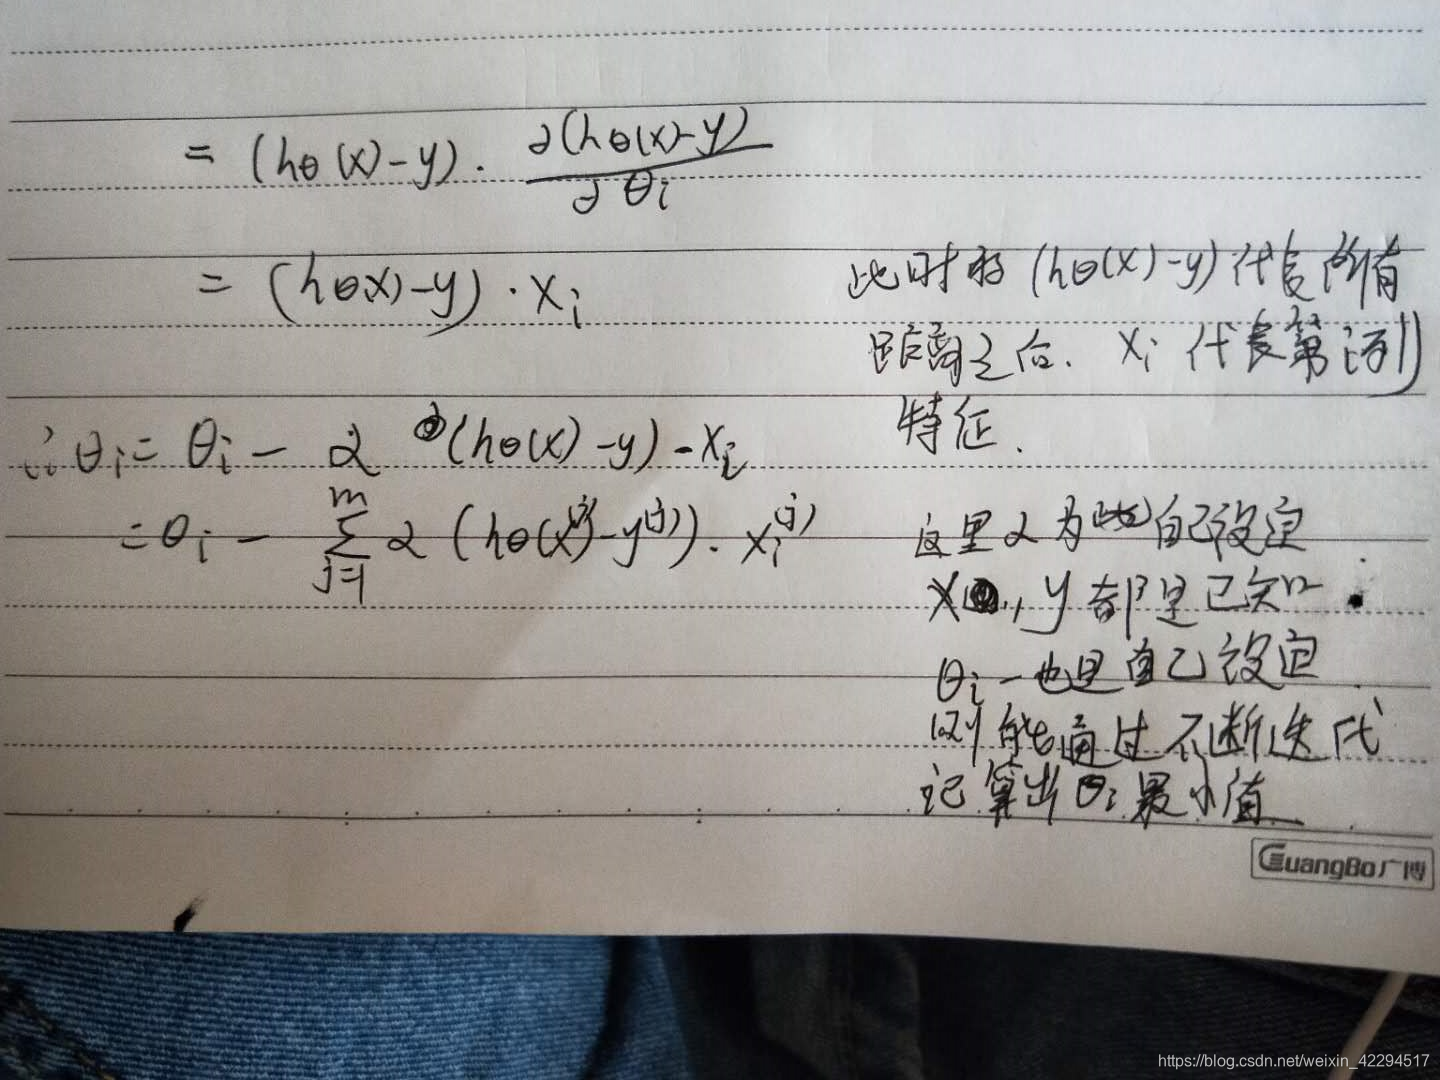 = (hθ(x)-y) · ∂(hθ(x)-y) / ∂θi
= (hθ(x)-y) · xi
此时的 (hθ(x)-y) 代表所有
距离之和. xi 代表第i列
特征.
∴ θi = θi - α (hθ(x)-y) - xi
= θi - Σ_{j=1}^{m} α (hθ(x^(j)) - y^(j)) · xi^(j)
这里 α 为 自己设定
x, y 都是已知
θi 一也是自己设定
则能通过不断迭代
记算出 θi 最小值
GuangBo 广博
https://blog.csdn.net/weixin_42294517